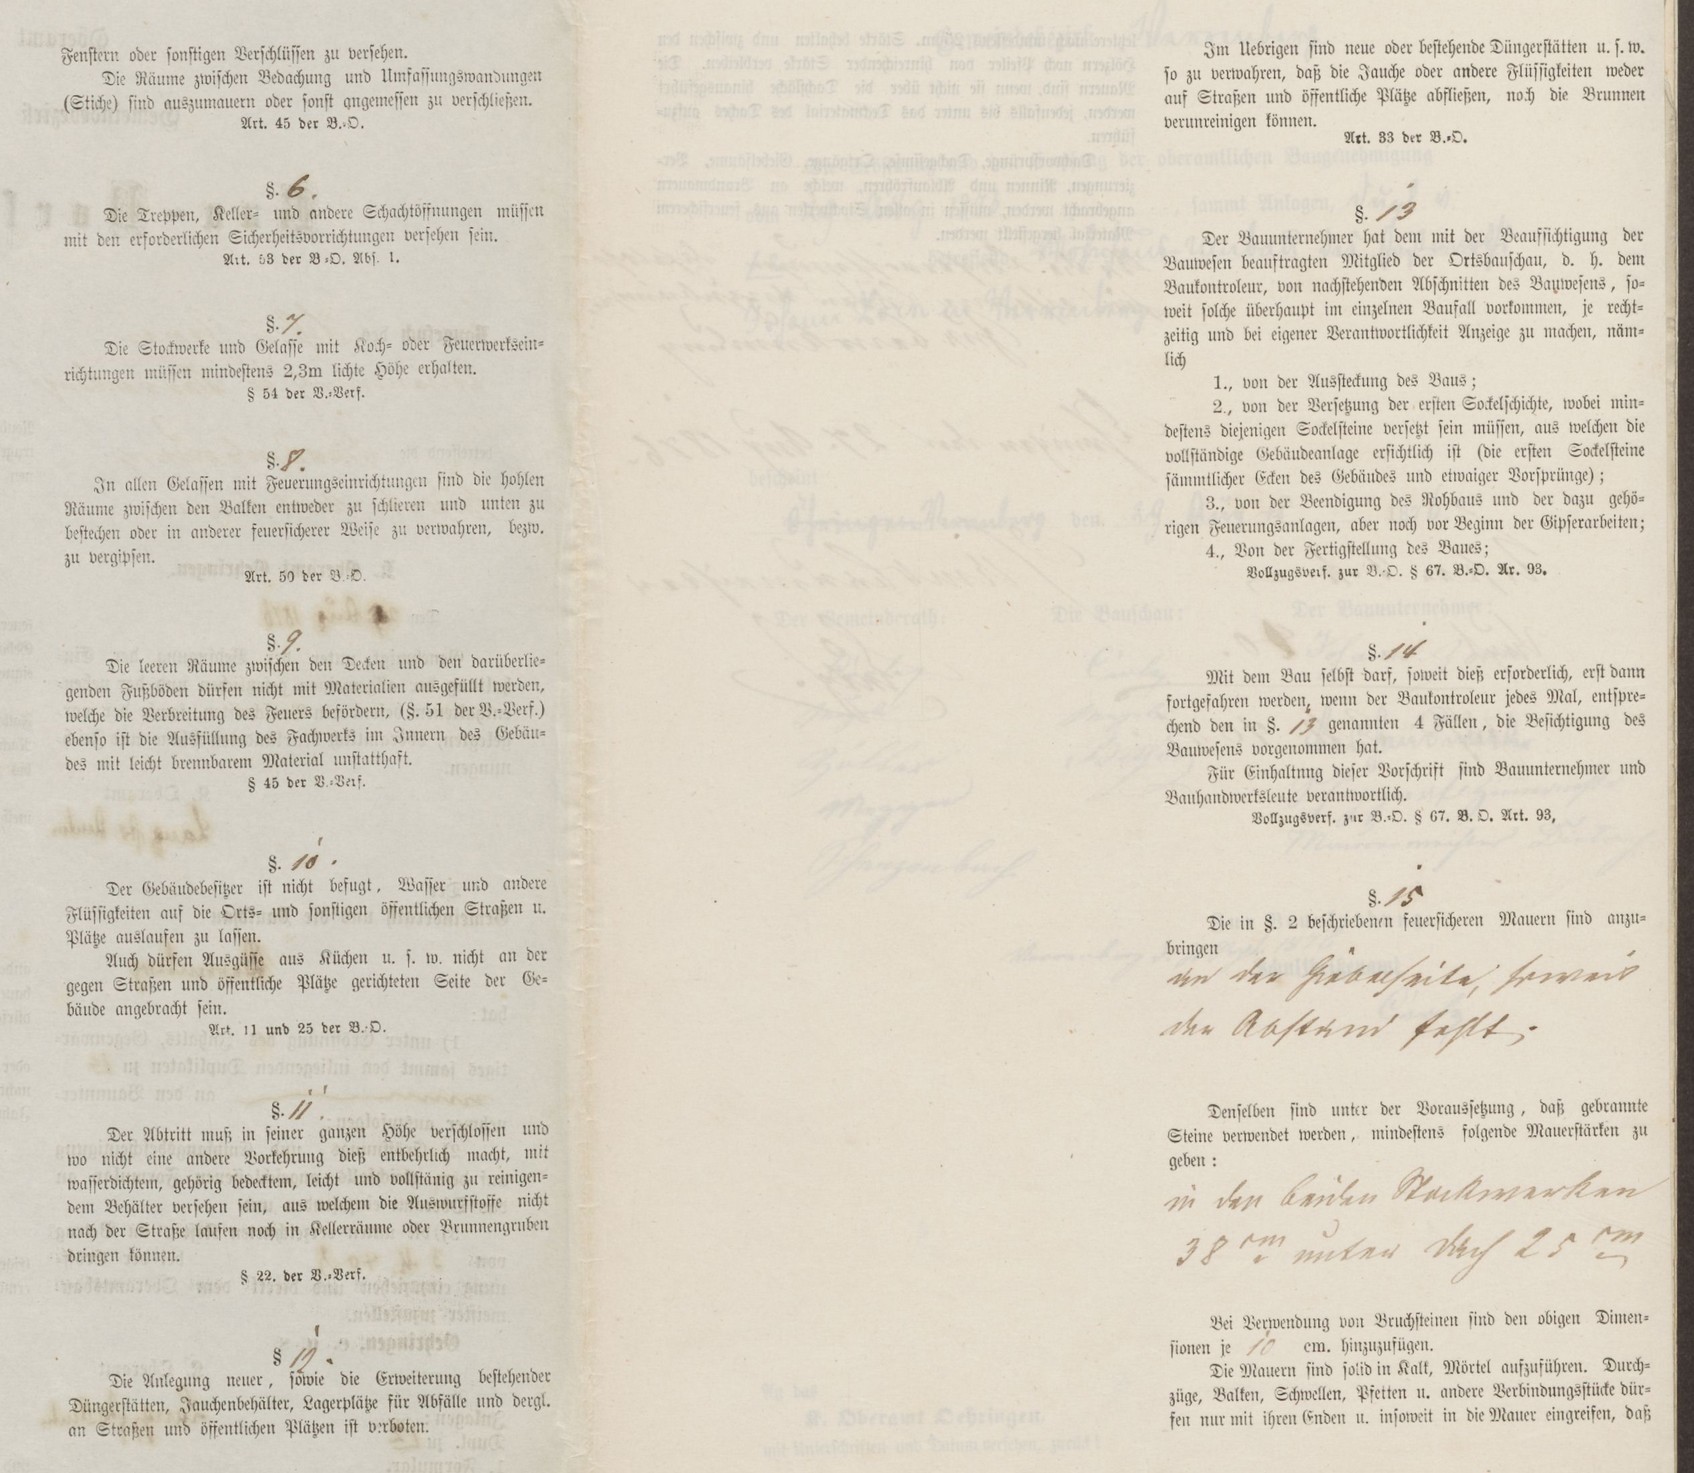 Fenstern oder sonstigen Verschlüssen zu versehen.
Die Räume zwischen Bedachung und Umfassungswandungen
(Stiche) sind auszumauern oder sonst angemessen zu verschließen.
Art. 45 der B.=O.
§. 6.
Die Treppen, Keller= und andere Schachtöffnungen müssen
mit den erforderlichen Sicherheitsvorrichtungen versehen sein.
Art. 53 der B=O. Abs. 1.
§. 7.
Die Stockwerke und Gelasse mit Koch= oder Feuerwerksein=
richtungen müssen mindestens 2,3m lichte Höhe erhalten.
§ 54 der V.=Verf.
§. 8.
In allen Gelassen mit Feuerungseinrichtungen sind die hohlen
Räume zwischen den Balken entweder zu schlieren und unten zu
bestechen oder in anderer feuersicherer Weise zu verwahren, bezw.
zu vergipsen.
Art. 50 der B.=O.
§. 9.
Die leeren Räume zwischen den Decken und den darüberlie=
genden Fußböden dürfen nicht mit Materialien ausgefüllt werden,
welche die Verbreitung des Feuers befördern, (§. 51 der V.=Verf.)
ebenso ist die Ausfüllung des Fachwerks im Innern des Gebäu=
des mit leicht brennbarem Material unstatthaft.
§ 45 der V.=Verf.
§. 10.
Der Gebäudebesitzer ist nicht befugt, Wasser und andere
Flüssigkeiten auf die Orts= und sonstigen öffentlichen Straßen u.
Plätze auslaufen zu lassen.
Auch dürfen Ausgüsse aus Küchen u. s. w. nicht an der
gegen Straßen und öffentliche Plätze gerichteten Seite der Ge=
bäude angebracht sein.
Art. 11 und 25 der B.=O.
§. 11.
Der Abtritt muß in seiner ganzen Höhe verschlossen und
wo nicht eine andere Vorkehrung dieß entbehrlich macht, mit
wasserdichtem, gehörig bedecktem, leicht und vollstänig zu reinigen=
dem Behälter versehen sein, aus welchem die Auswurfstoffe nicht
nach der Straße laufen noch in Kellerräume oder Brunnengruben
dringen können.
§ 22. der V.=Verf.
§ 12.
Die Anlegung neuer, sowie die Erweiterung bestehender
Düngerstätten, Jauchenbehälter, Lagerplätze für Abfälle und dergl.
an Straßen und öffentlichen Plätzen ist verboten.
Im Uebrigen sind neue oder bestehende Düngerstätten u. s. w.
so zu verwahren, daß die Jauche oder andere Flüssigkeiten weder
auf Straßen und öffentliche Plätze abfließen, noch die Brunnen
verunreinigen können.
Art. 33 der B.=O.
§. 13
Der Bauunternehmer hat dem mit der Beaufsichtigung der
Bauwesen beauftragten Mitglied der Ortsbauschau, d. h. dem
Baukontroleur, von nachstehenden Abschnitten des Bauwesens, so=
weit solche überhaupt im einzelnen Baufall vorkommen, je recht=
zeitig und bei eigener Verantwortlichkeit Anzeige zu machen, näm=
lich
1., von der Aussteckung des Baus;
2., von der Versetzung der ersten Sockelschichte, wobei min=
destens diejenigen Sockelsteine versetzt sein müssen, aus welchen die
vollständige Gebäudeanlage ersichtlich ist (die ersten Sockelsteine
sämmtlicher Ecken des Gebäudes und etwaiger Vorsprünge);
3., von der Beendigung des Rohbaus und der dazu gehö=
rigen Feuerungsanlagen, aber noch vor Beginn der Gipserarbeiten;
4., Von der Fertigstellung des Baues;
Vollzugsverf. zur B.=O. § 67. B.=O. Ar. 93.
§. 14
Mit dem Bau selbst darf, soweit dieß erforderlich, erst dann
fortgefahren werden, wenn der Baukontroleur jedes Mal, entspre=
chend den in §. 13 genannten 4 Fällen, die Besichtigung des
Bauwesens vorgenommen hat.
Für Einhaltung dieser Vorschrift sind Bauunternehmer und
Bauhandwerksleute verantwortlich.
Vollzugsverf. zur B.=O. § 67. B. O. Art. 93,
§. 15
Die in §. 2 beschriebenen feuersicheren Mauern sind anzu=
bringen
an der Giebelseite, soweit
der Abstand fehlt.
Denselben sind unter der Voraussetzung, daß gebrannte
Steine verwendet werden, mindestens folgende Mauerstärken zu
geben:
in den beiden Stockwerken
38 cm unter Dach 25 cm
Bei Verwendung von Bruchsteinen sind den obigen Dimen=
sionen je 10 cm. hinzuzufügen.
Die Mauern sind solid in Kalk, Mörtel aufzuführen. Durch=
züge, Balken, Schwellen, Pfetten u. andere Verbindungsstücke dür=
fen nur mit ihren Enden u. insoweit in die Mauer eingreifen, daß